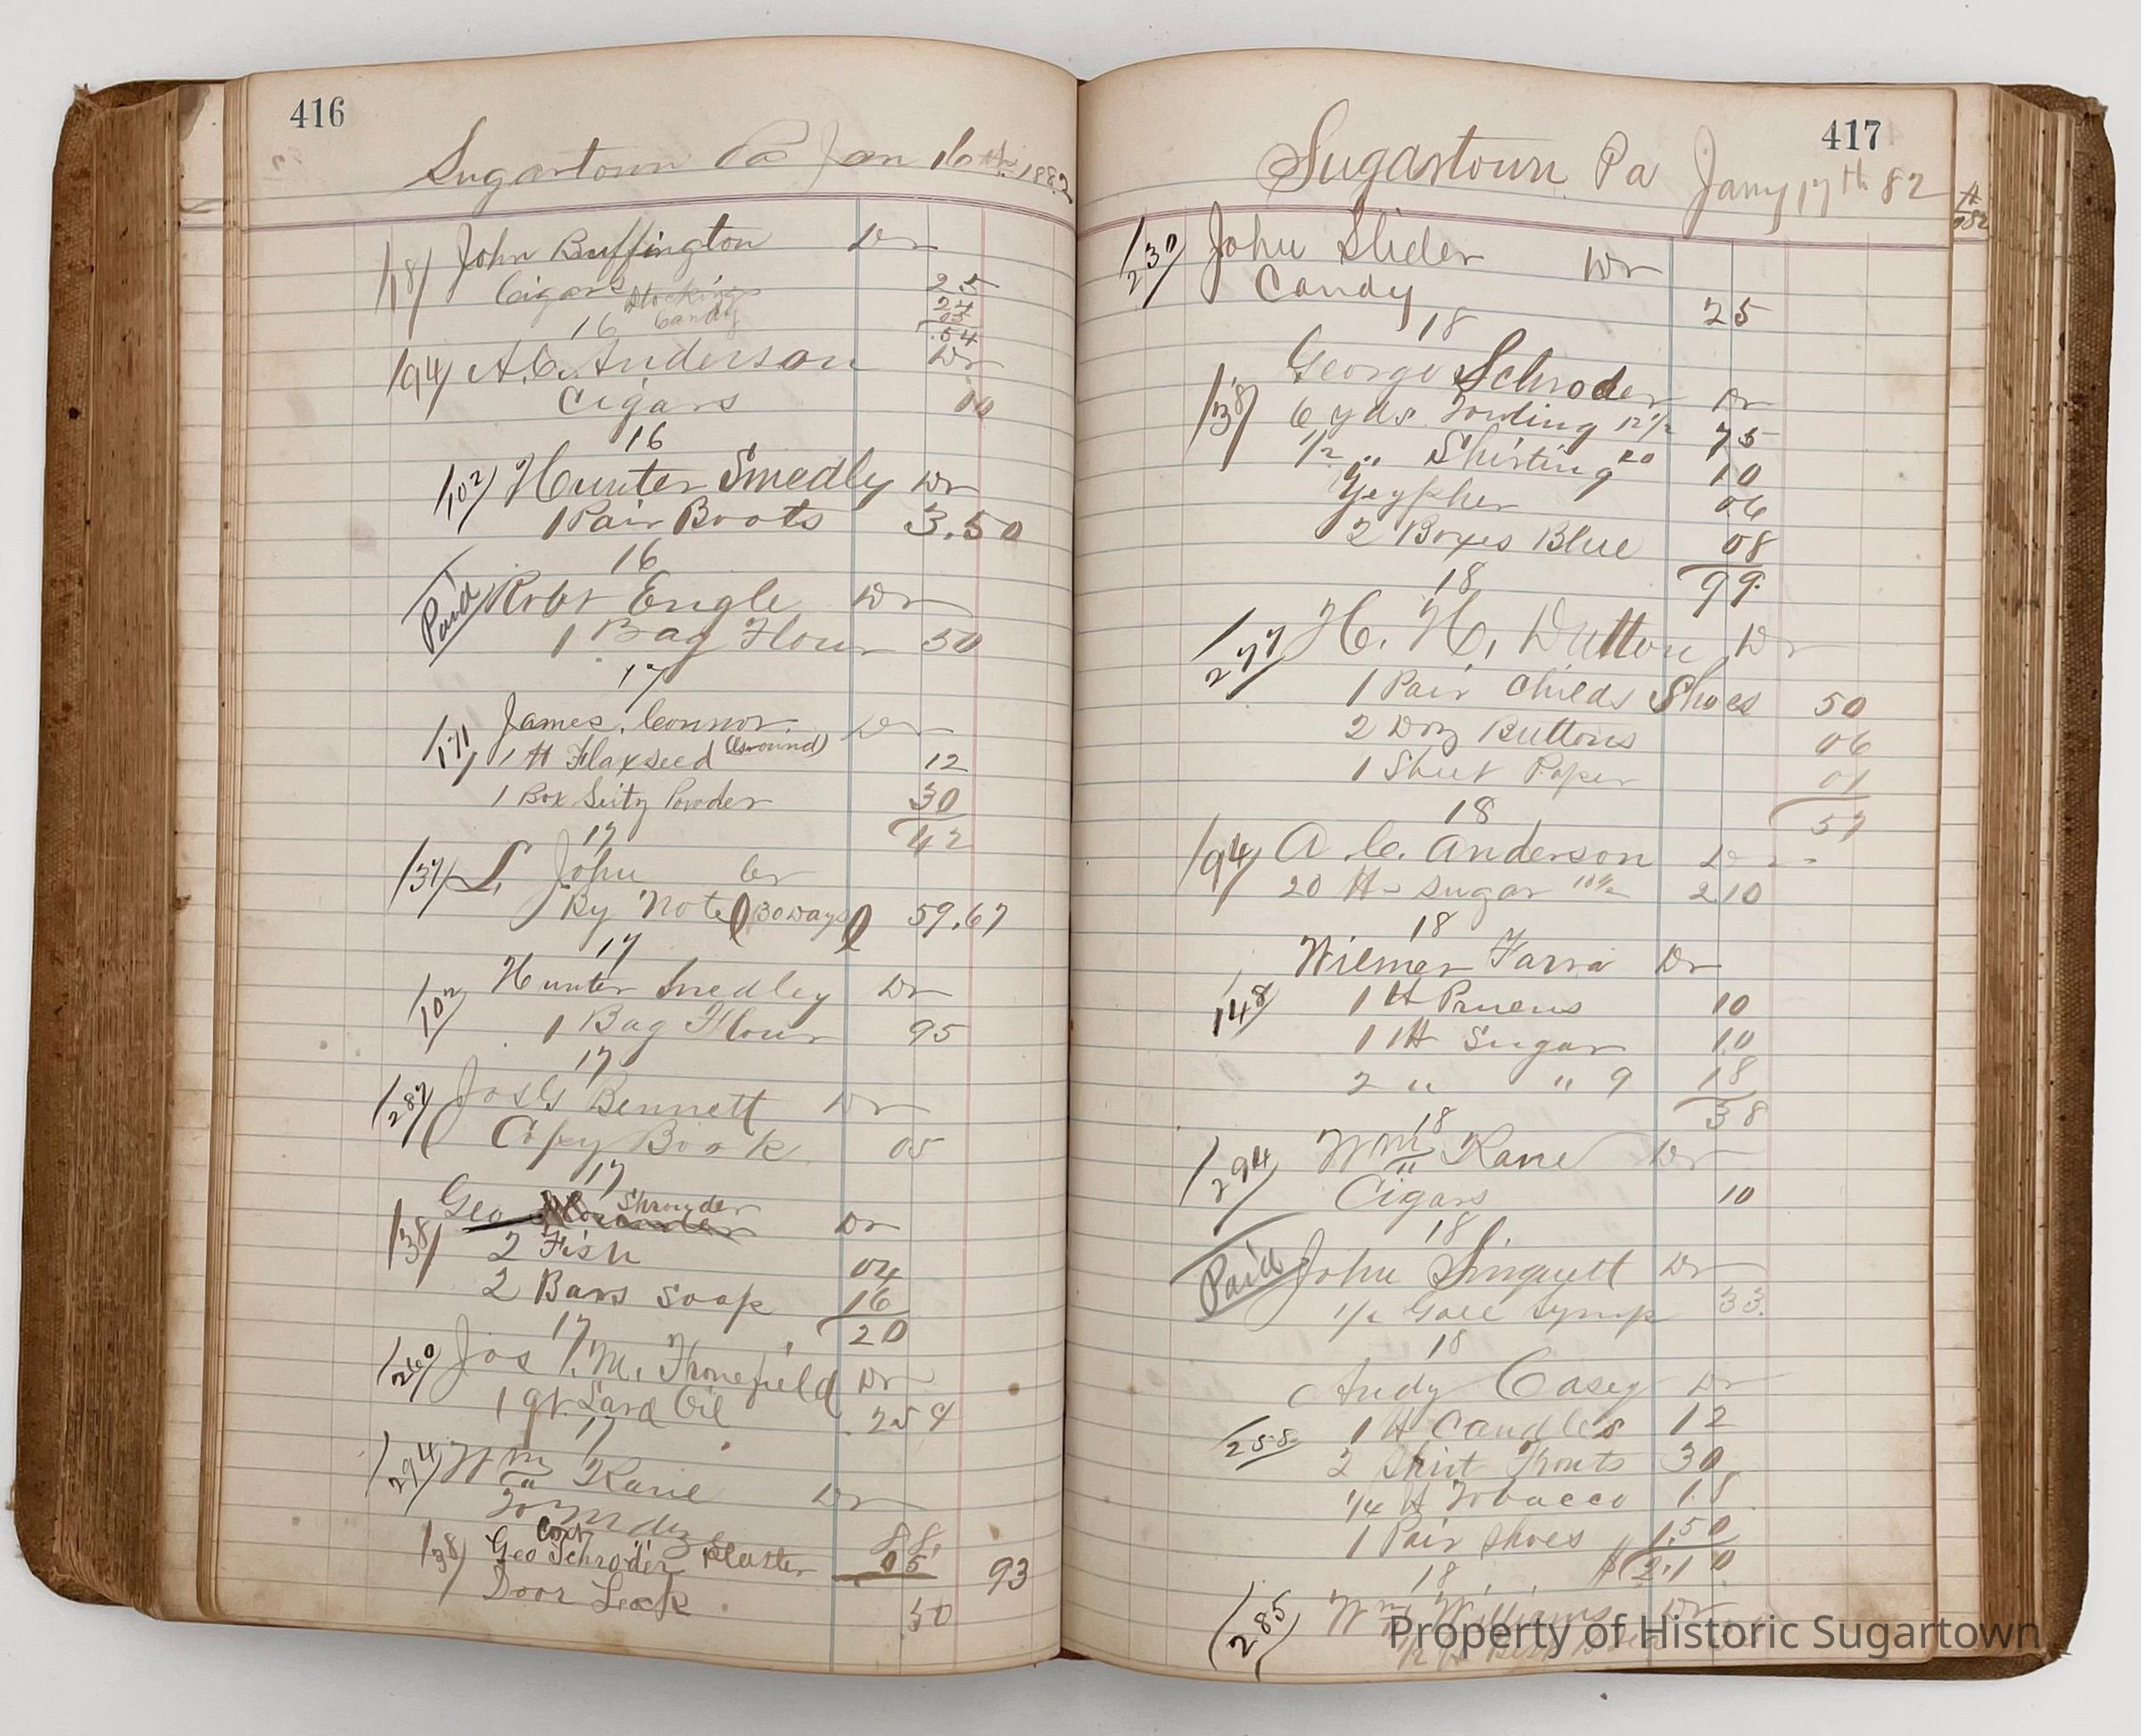 416
Sugartown Pa Jan 16th 1882
/18/ John Buffington Dr
Cigars 25
Stockings 24
Candy 05
16 .54
/94/ A. C. Anderson Dr
Cigars 10
16
/102/ Hunter Smedly Dr
1 Pair Boots 3.50
16
Paid Robt Engle Dr
1 Bag Flour 50
17
/171/ James Connor Dr
1 # Flaxseed (Ground) 12
1 Box Seitz Powder 30
17 42
/37/ L. John Cr
By Note (30 Days) 59.67
17
/102/ Hunter Smedley Dr
1 Bag Flour 95
17
/287/ Jos G Bennett Dr
Copy Book 05
17
Geo Shrouder Dr
/38/ 2 Fish 04
2 Bars Soap 16
17 20
/260/ Jos M. Thonefield Dr
1 qt. Lard Oil 25
17
/294/ Wm Kane Dr
88
Court plaster 05 93
/38/ Geo Schroder
Door Lock 50
417
Sugartown Pa Jany 17th 82
/230/ John Slider Dr
Candy 25
18
George Schroder Dr
/38/ 6 yds. Towling 12 1/2 75
1/2 " Shirting 20 10
Zeypher 06
2 Boxes Blue 08
18 99
/277/ H. H. Dutton Dr
1 Pair Childs Shoes 50
2 Doz Buttons 06
1 Sheet Paper 01
18 57
/94/ A. C. Anderson Dr
20 # Sugar 10 1/2 2 10
18
Wilmer Farra Dr
/148/ 1 # Pruens 10
1 # Sugar 10
2 " " 9 18
18 38
/294/ Wm Kane Dr
Cigars 10
18
Paid John Singuett Dr
1/2 Gall Syrup 33
18
Andy Casey Dr
/258/ 1 # Candles 12
2 Shirt Fronts 30
1/4 # Tobacco 18
1 Pair Shoes 1.50
18 $ 2.10
/285/ Wm Williams Dr
Property of Historic Sugartown